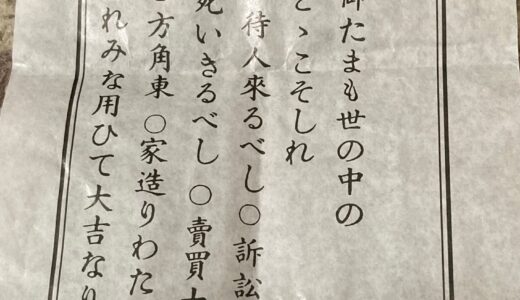 御たまも世の中の
とゝこそしれ
待人來るべし〇訴訟
死いきるべし〇賣買大
方角東〇家造りわた
れみな用ひて大吉なり